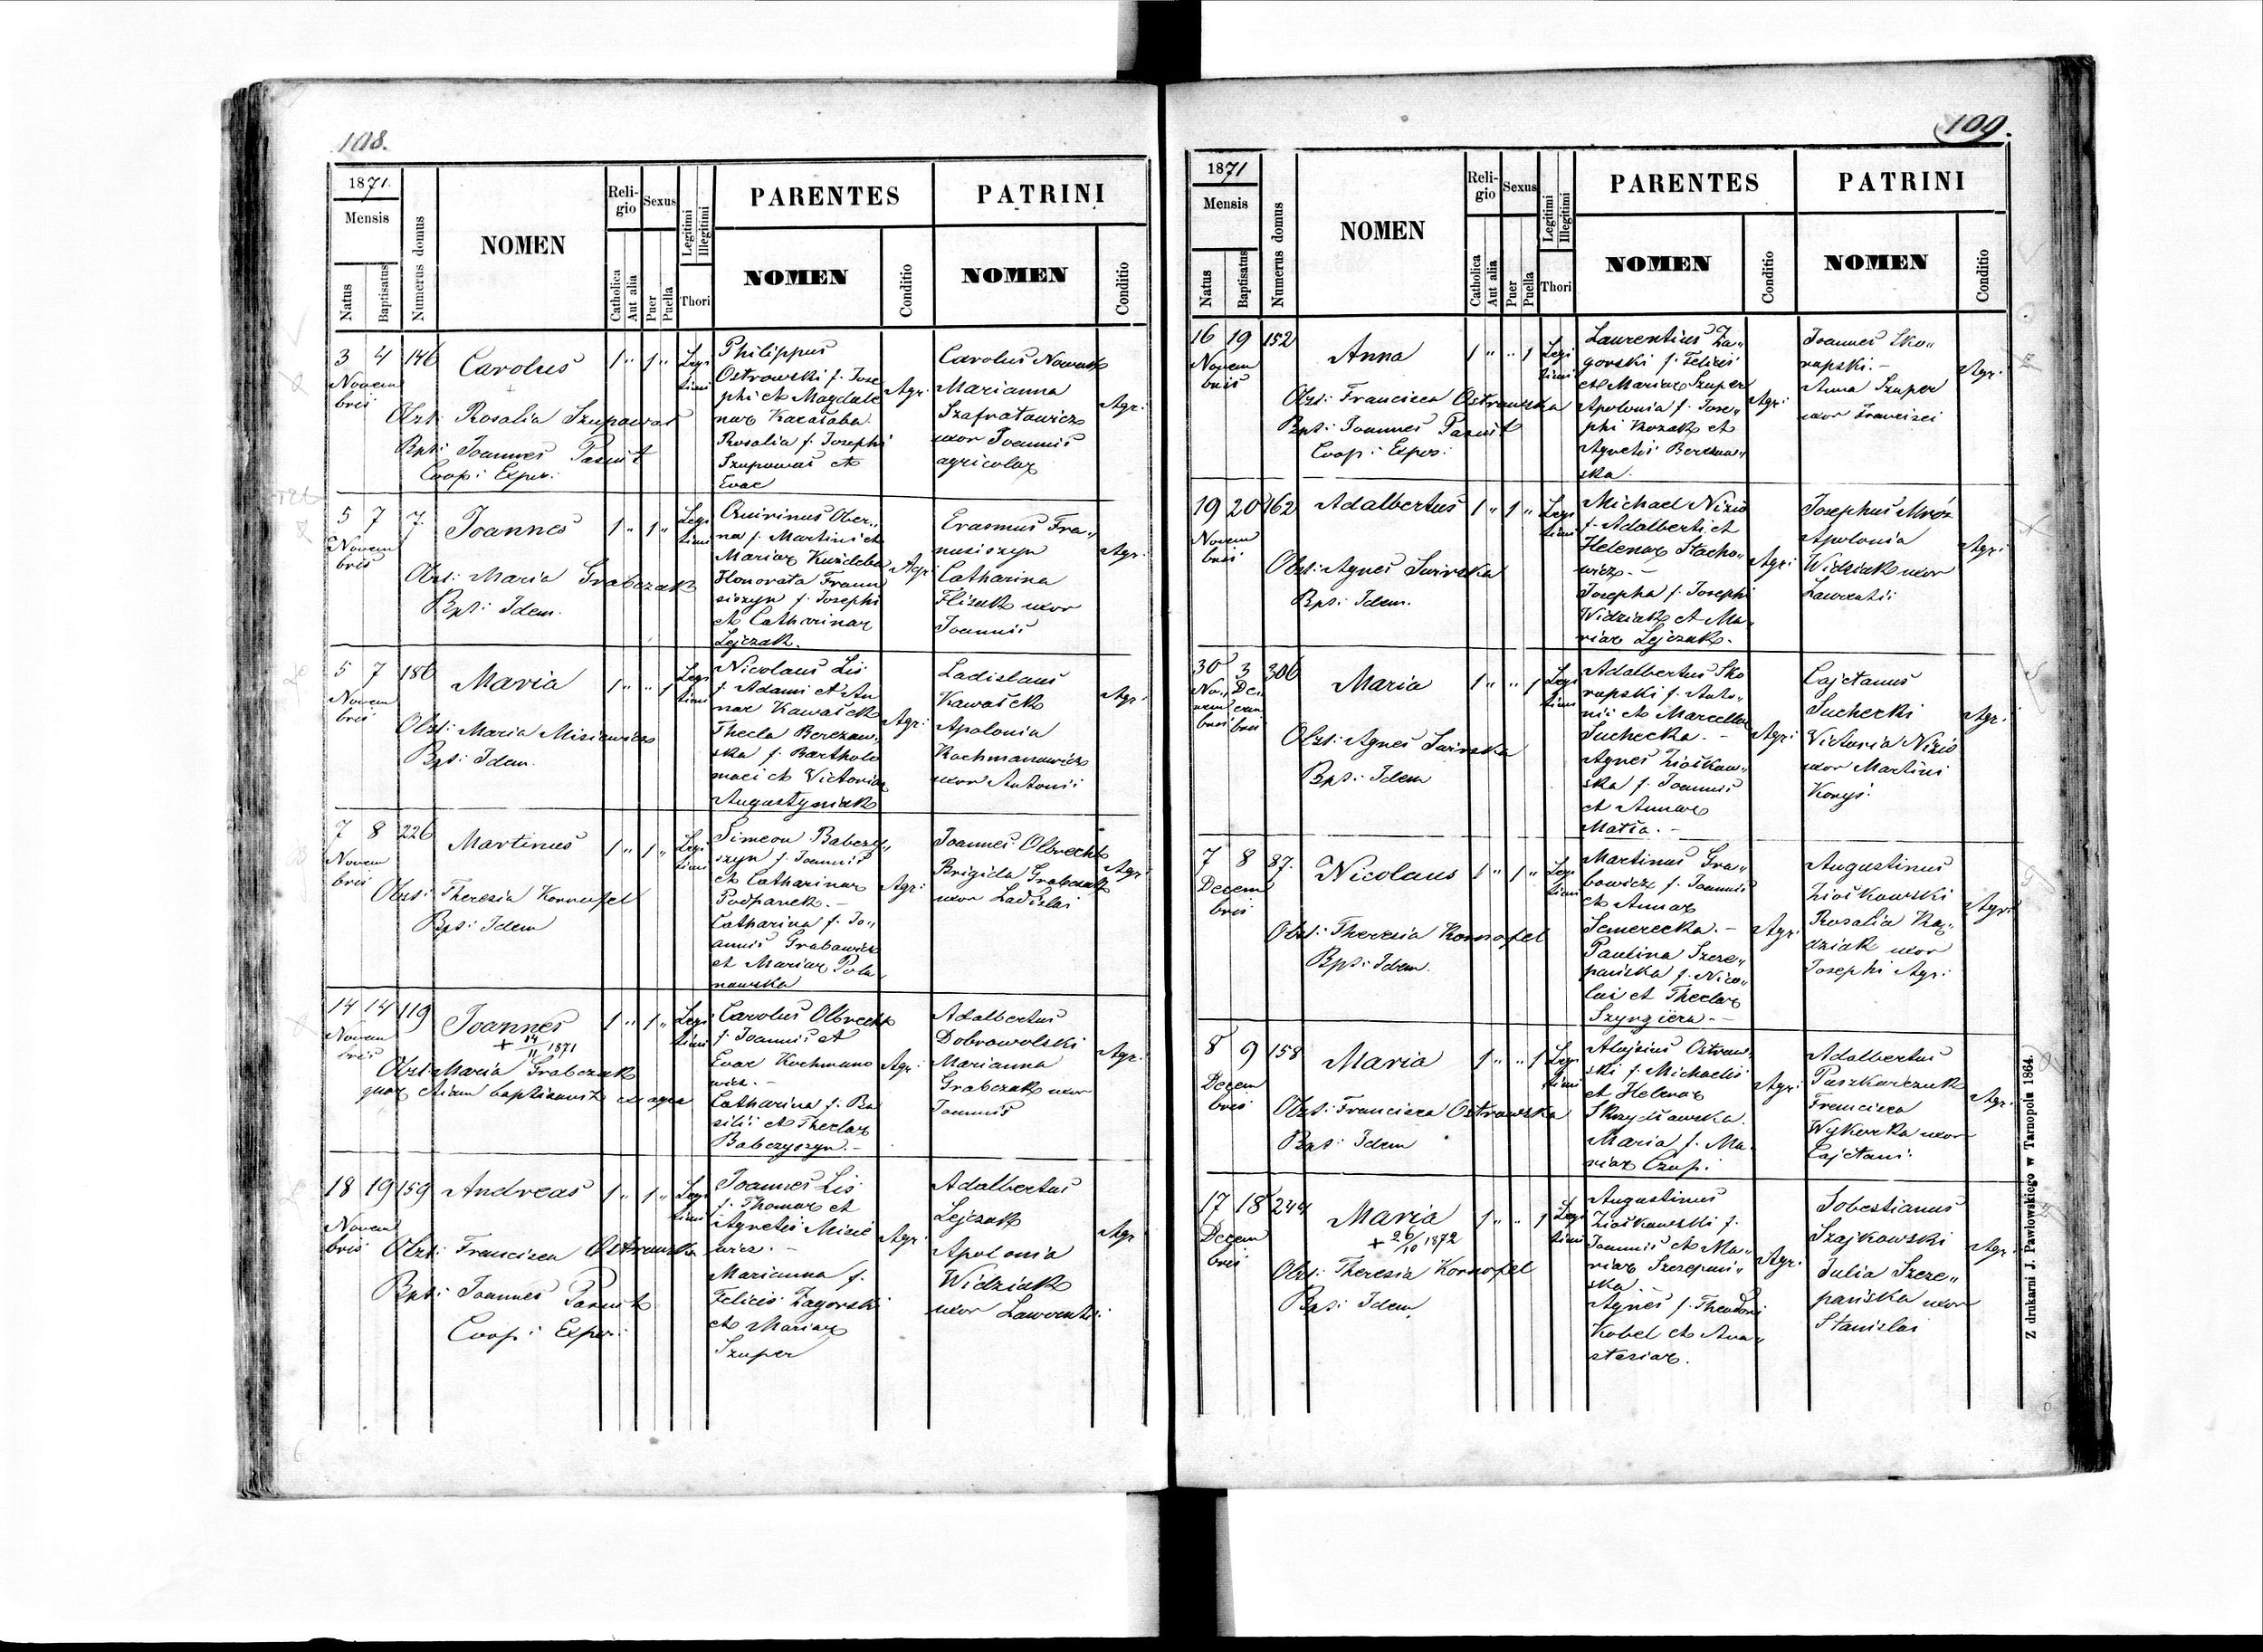 108.
1871.
Mensis
Natus
Baptisatus
Numerus domus
NOMEN
Religio
Catholica
Aut alia
Sexus
Puer
Puella
Legitimi
Illegitimi
Thori
PARENTES
NOMEN
Conditio
PATRINI
NOMEN
Conditio
3 4 146
Novem
bris
Carolus
1 " 1 "
Legi
timi
Obst: Rosalia Szupowas
Bpt: Joannes Pasnit
Coop: Expos:
Philippus
Ostrowski f. Jose
phi et Magdale
nae Kacałaba
Rosalia f. Josephi
Szupowas et
Evae
Agr:
Carolus Nowak
Marianna
Szafratowicz
uxor Joannis
agricolae
Agr:
5 7 7.
Novem
bris
Joannes
1 " 1 "
Legi
timi
Obst: Maria Grabczak
Bpt: Idem.
Quirinus Ober„
na f. Martini et
Mariae Kuździeba
Honorata Frann
siszyn f. Josephi
et Catharinae
Lejczak.
Agr:
Erasmus Fra„
nusiszyn
Catharina
Flisak uxor
Joannis
Agr:
5 7 186
Novem
bris
Maria
1 " " 1
Legi
timi
Obst: Maria Misiewicz
Bpt: Idem.
Nicolaus Lis
f. Adami et An
nae Kawałek
Thecla Berezow„
ska f. Bartholo
maei et Victoriae
Augustyniak
Agr:
Ladislaus
Kawałek
Apolonia
Rochmanowicz
uxor Antonii
Agr:
7 8 226
Novem
bris
Martinus
1 " 1 "
Legi
timi
Obst: Theresia Kornafel
Bpt: Idem
Simeon Babczy„
szyn f. Joannis
et Catharinae
Podpanek. –
Catharina f. Jo„
annis Grabowicz
et Mariae Pola
nowska
Agr:
Joannes Olbrecht
Brigida Grabczak
uxor Ladislai
Agr:
14 14 119
Novem
bris
Joannes
+ 14/11 1871
1 " 1 "
Legi
timi
Obst: Maria Grabczak
quae etiam baptisavit ex aqua
Carolus Olbrecht
f. Joannis et
Evae Kochmano
wicz. –
Catharina f. Ba
silii et Theclae
Babczyszyn. –
Agr:
Adalbertus
Dobrowolski
Marianna
Grabczak uxor
Joannis
Agr:
18 19 159
Novem
bris
Andreas
1 " 1 "
Legi
timi
Obst: Francisca Ostrowska
Bpt: Joannes Pasnit
Coop: Expos:
Joannes Lis
f. Thomae et
Agnetis Misie
wicz. –
Marianna f.
Felicis Zagorski
et Mariae
Szuper
Agr:
Adalbertus
Lejczak
Apolonia
Widziak
uxor Lawrentii
Agr:
109.
1871
Mensis
Natus
Baptisatus
Numerus domus
NOMEN
Religio
Catholica
Aut alia
Sexus
Puer
Puella
Legitimi
Illegitimi
Thori
PARENTES
NOMEN
Conditio
PATRINI
NOMEN
Conditio
16 19 152
Novem
bris
Anna
1 " " 1
Legi
timi
Obst: Francisca Ostrowska
Bpt: Joannes Pasnit
Coop: Expos:
Laurentius Za„
gorski f. Felicis
et Mariae Szuper
Apolonia f. Jose„
phi Kozak et
Agnetis Berezow„
ska.
Agr:
Joannes Sko„
rupski. –
Anna Szuper
uxor Francisci
Agr:
19 20 162
Novem
bris
Adalbertus
1 " 1 "
Legi
timi
Obst: Agnes Swirska
Bpt: Idem.
Michael Nizio
f. Adalberti et
Helenae Stacho„
wicz. –
Josepha f. Josephi
Widziak et Ma„
riae Lejczak.
Agr:
Josephus Mróz
Apolonia
Widziak uxor
Lawrentii
Agr:
30 3 306
No„ De„
vem cem
bris bris
Maria
1 " " 1
Legi
timi
Obst: Agnes Swirska
Bpt: Idem
Adalbertus Sko
rupski f. Anto„
nii et Marcella
Suchecka. –
Agnes Ziołkow„
ska f. Joannis
et Annae
Matia. –
Agr:
Cajetanus
Suchecki
Victoria Nizio
uxor Martini
Konys.
Agr:
7 8 87.
Decem
bris
Nicolaus
1 " 1 "
Legi
timi
Obst: Theresia Kornafel
Bpt: Idem.
Martinus Gra„
bowicz f. Joannis
et Annae
Semerecka. –
Paulina Szcze„
pańska f. Nico„
lai et Theclae
Szyngiera. –
Agr:
Augustinus
Ziołkowski
Rosalia Ka„
dziak uxor
Josephi Agr:
Agr:
8 9 158
Decem
bris
Maria
1 " " 1
Legi
timi
Obst: Francisca Ostrowska
Bpt: Idem
Alojsius Ostrow„
ski f. Michaelis
et Helenae
Skrzydłowska.
Maria f. Ma„
riae Czup.
Agr:
Adalbertus
Paszkarczuk
Francisca
Wykorka uxor
Cajetani.
Agr:
17 18 244
Decem
bris
Maria
+ 26/10 1872
1 " " 1
Legi
timi
Obst: Theresia Kornafel
Bpt: Idem.
Augustinus
Ziołkowski f.
Joannis et Ma„
riae Szczepań„
ska. –
Agnes f. Theodori
Kobel et Ana„
stasiae.
Agr:
Sobestianus
Szajkowski
Julia Szcze„
pańska uxor
Stanislai
Agr:
Z drukarni J. Pawłowskiego w Tarnopolu 1864.